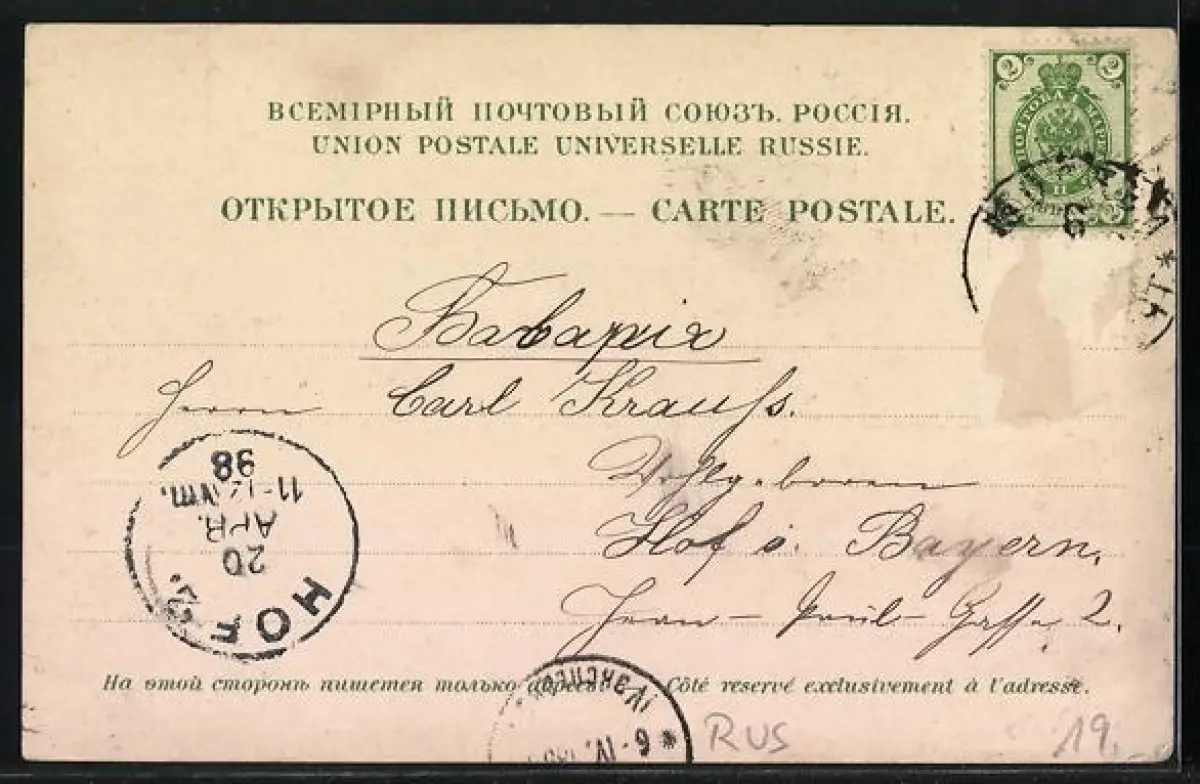 ВСЕМІРНЫЙ ПОЧТОВЫЙ СОЮЗЪ. РОССІЯ.
UNION POSTALE UNIVERSELLE RUSSIE.
ОТКРЫТОЕ ПИСЬМО. — CARTE POSTALE.
2 2
6
Баварія
Herrn Carl Krauß.
Wohlgeboren
Hof i. Bayern.
Jean-Paul-Gasse 2.
HOF
20
APR.
11-12 VM.
98
На этой сторонѣ пишется только адресъ. — Côté reservé exclusivement à l'adresse.
IV ЭКСПЕД.
* 6. IV.
RUS 19.